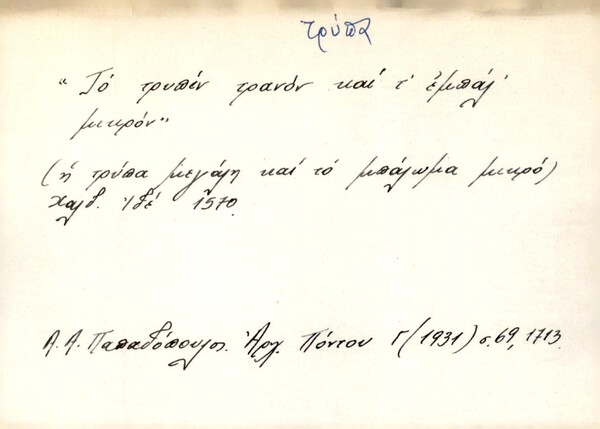 τρύπα
"Τό τρυπέν τρανόν καί τ' ἐμπάλ'
μικρόν"
(ἡ τρύπα μεγάλη καί τό μπάλωμα μικρό)
Χαλδ. Ἰδέ 1570.
Α. Α. Παπαδόπουλος. Ἀρχ. Πόντου Γ (1931) σ. 69, 1713.